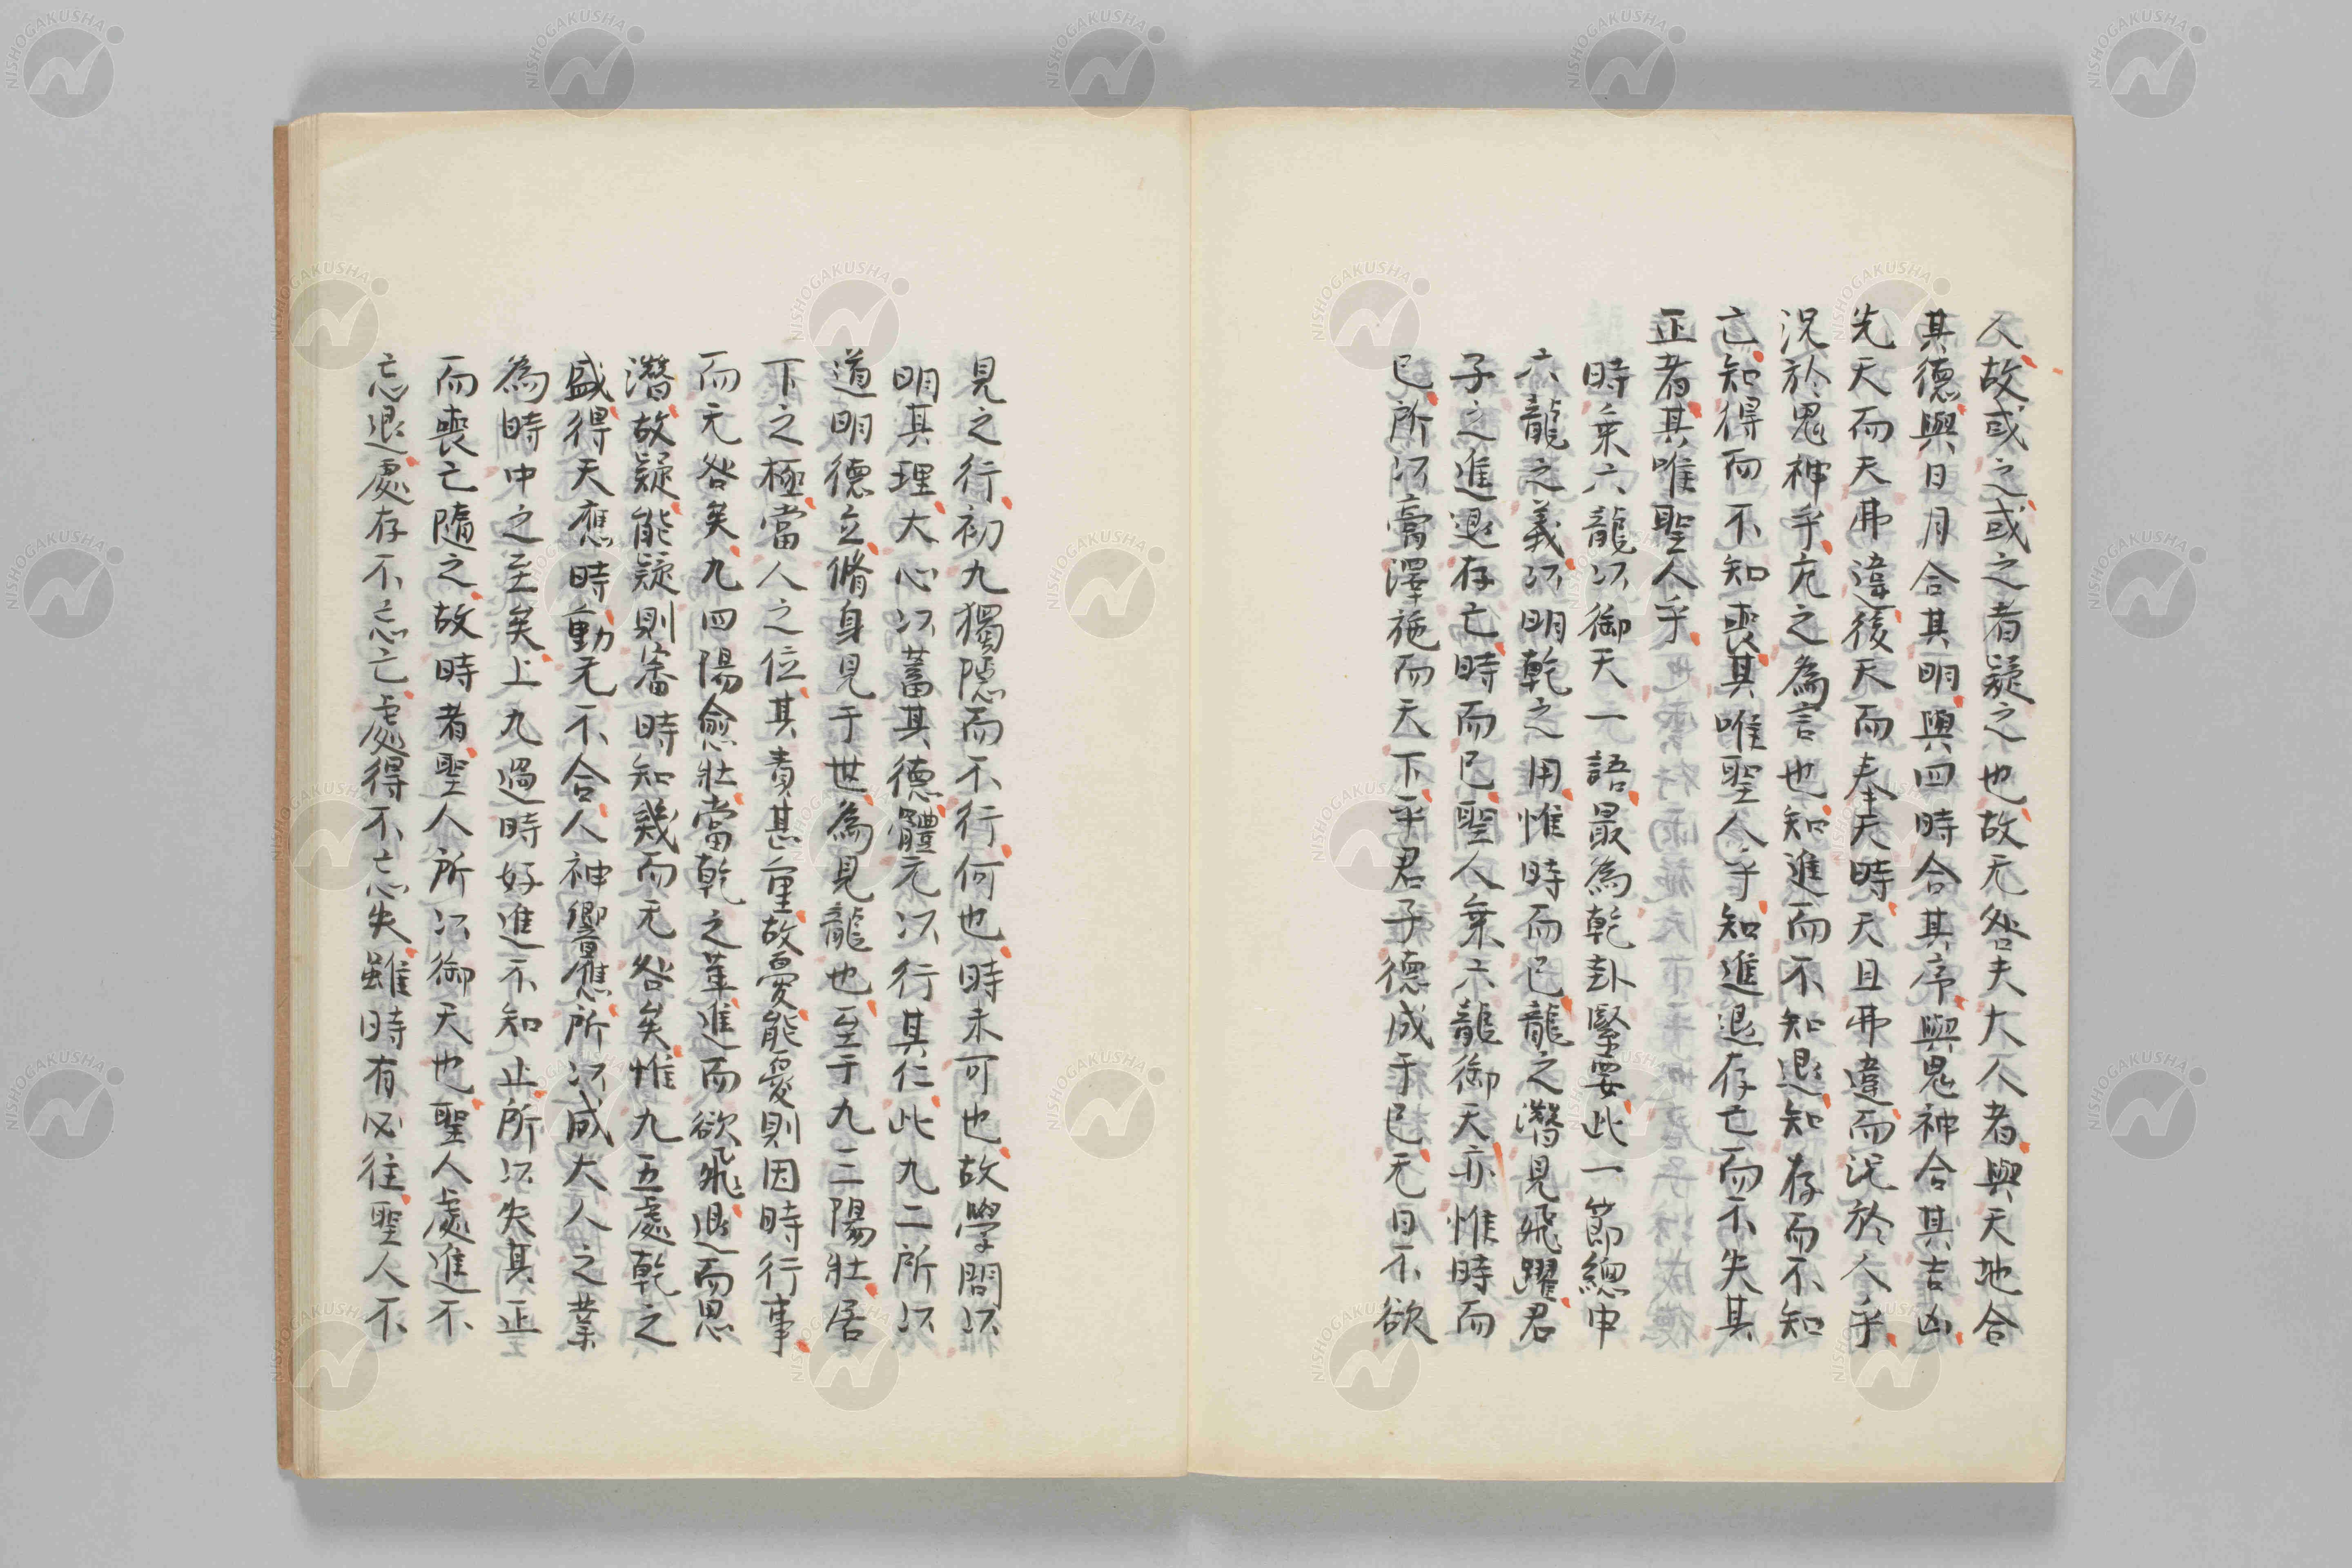 人故或之或之者疑之也故无咎夫大人者與天地合
其德與日月合其明與四時合其序與鬼神合其吉凶
先天而天弗違後天而奉天時天且弗違而況於人乎
況於鬼神乎亢之為言也知進而不知退知存而不知
亡知得而不知喪其唯聖人乎知進退存亡而不失其
正者其唯聖人乎
時乘六龍以御天一語最為乾卦緊要此一節總申
六龍之義以明乾之用惟時而已龍之潛見飛躍君
子之進退存亡時而已聖人乘六龍御天亦惟時而
已所以膏澤施而天下平君子德成于已无日不欲
見之行初九獨隱而不行何也時未可也故學問以
明其理大心以蓄其德體元以行其仁此九二所以
道明德立脩身見于世為見龍也至于九三陽壯居
下之極當人之位其責甚重故憂能憂則因時行事
而无咎矣九四陽愈壯當乾之革進而欲飛退而思
潛故疑能疑則審時知幾而无咎矣惟九五處乾之
盛得天應時動无不合人神響應所以成大人之業
為時中之至矣上九過時好進不知止所以失其正
而喪亡隨之故時者聖人所以御天也聖人處進不
忘退處存不忘亡處得不忘失雖時有必往聖人不
NISHOGAKUSHA